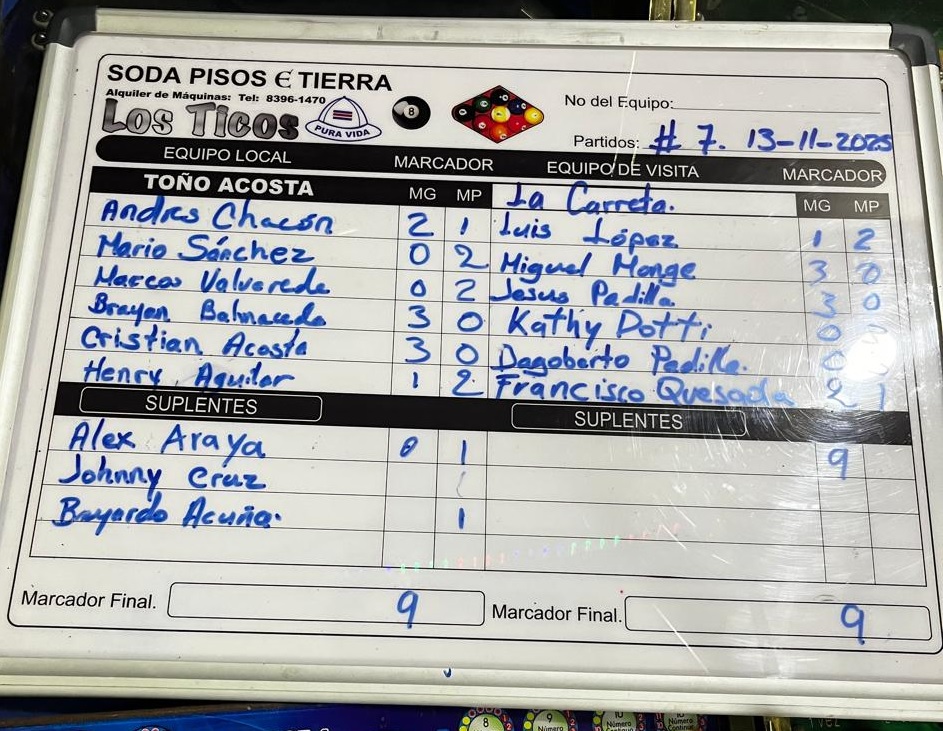 SODA PISOS E TIERRA
Alquiler de Máquinas: Tel: 8396-1470
LOS TICOS
PURA VIDA
8
No del Equipo:
Partidos: # 7. 13-11-2025
EQUIPO LOCAL MARCADOR EQUIPO DE VISITA MARCADOR
TOÑO ACOSTA MG MP La Carreta. MG MP
Andres Chacón 2 1 Luis López 1 2
Mario Sánchez 0 2 Miguel Monge 3 0
Marcos Valverede 0 2 Jesus Padilla 3 0
Brayan Balmaceda 3 0 Kathy Dotti 0
Cristian Acosta 3 0 Dagoberto Padilla. 0
Henry Aguilar 1 2 Francisco Quesada 2 1
SUPLENTES SUPLENTES
Alex Araya 0 1 9
Johnny Cruz 1
Bayardo Acuña. 1
Marcador Final. 9 Marcador Final. 9
8
9
Número
10
Número
Número